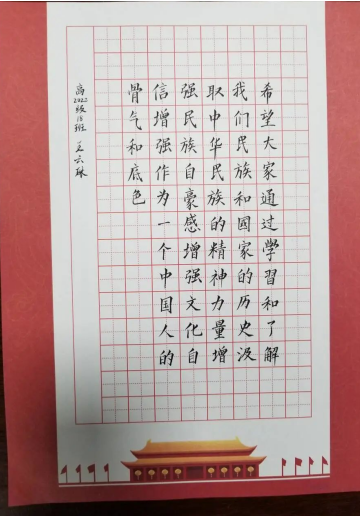 希望大家通过学習和了解
我们民族和國家的历史汲
取中华民族的精神力量增
强民族自豪感增强文化自
信增强作为一个中国人的
骨气和底色
高2022级15班 王云琳